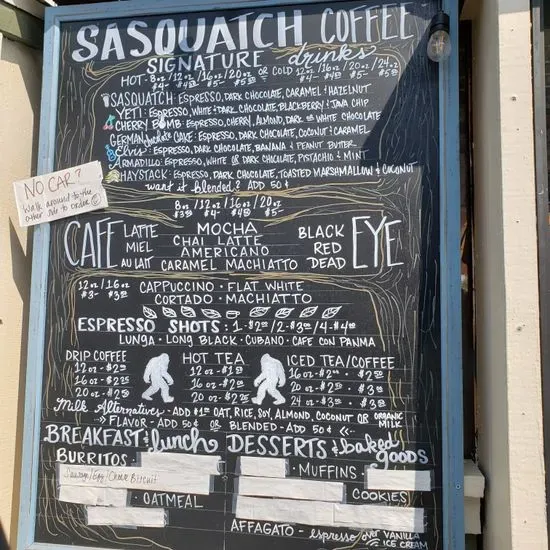 SASQUATCH COFFEE
SIGNATURE drinks
HOT- 8oz/12oz/16oz/20oz OR COLD 12oz/16oz/20oz/24oz
SASQUATCH: ESPRESSO, DARK CHOCOLATE, CARAMEL & HAZELNUT
YETI: ESPRESSO, WHITE & DARK CHOCOLATE, BLACKBERRY & JAVA CHIP
CHERRY BOMB: ESPRESSO, CHERRY, ALMOND, DARK OR WHITE CHOCOLATE
GERMAN chocolate CAKE: ESPRESSO, DARK CHOCOLATE, COCONUT & CARAMEL
Elvis: ESPRESSO, DARK CHOCOLATE, BANANA & PEANUT BUTTER
ARMADILLO: ESPRESSO, WHITE OR DARK CHCLATE, PISTACHIO & MINT
HAYSTACK: ESPRESSO, DARK CHOCOLATE, TOASTED MARSHMALLOW & COCONUT
want it blended? ADD 50¢
NO CAR?
Walk around to the
other side to order
8oz/12oz/16oz/20oz
CAFE LATTE
MIEL
AU LAIT
MOCHA
CHAI LATTE
AMERICANO
CARAMEL MACHIATTO
BLACK
RED
DEAD
EYE
12oz/16oz
CAPPUCCINO · FLAT WHITE
CORTADO · MACHIATTO
ESPRESSO SHOTS: 1-$2⁰⁰/2-$3⁰⁰/4-$4⁰⁰
LUNGA · LONG BLACK · CUBANO · CAFE CON PANMA
DRIP COFFEE
12oz -
16oz -
20oz -
HOT TEA
12oz -
16oz -
20oz -
ICED TEA/COFFEE
16oz -
20oz -
24oz -
Milk Alternatives - ADD OAT, RICE, SOY, ALMOND, COCONUT OR ORGANIC MILK
FLAVOR - ADD 50¢ OR BLENDED - ADD 50¢
BREAKFAST & lunch DESSERTS & baked goods
BURRITOS
Sausage/Egg/Cheese Biscuit
· OATMEAL
· MUFFINS ·
COOKIES
AFFAGATO - espresso over VANILLA ICE CREAM